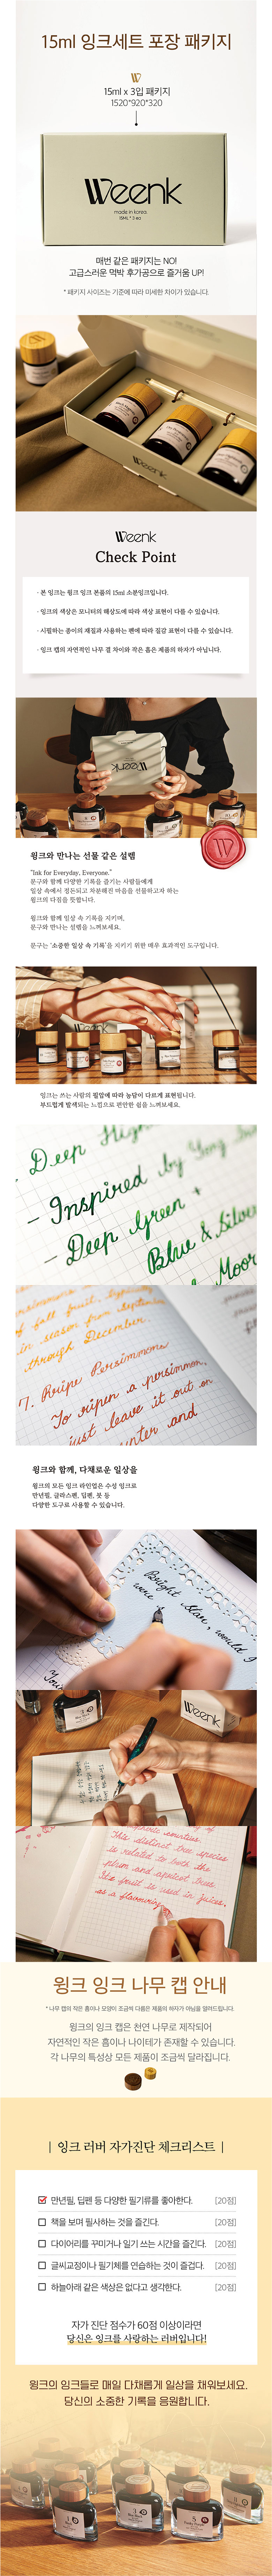 15ml 잉크세트 포장 패키지
W
15ml x 3입 패키지
1520*920*320
Weenk
made in korea.
15ML * 3 ea
매번 같은 패키지는 NO!
고급스러운 먹박 후가공으로 즐거움 UP!
* 패키지 사이즈는 기준에 따라 미세한 차이가 있습니다.
Weenk
Check Point
· 본 잉크는 윙크 잉크 본품의 15ml 소분잉크입니다.
· 잉크의 색상은 모니터의 해상도에 따라 색상 표현이 다를 수 있습니다.
· 시필하는 종이의 재질과 사용하는 펜에 따라 질감 표현이 다를 수 있습니다.
· 잉크 캡의 자연적인 나무 결 차이와 작은 흠은 제품의 하자가 아닙니다.
Weenk
W
윙크와 만나는 선물 같은 설렘
"Ink for Everyday, Everyone."
문구와 함께 다양한 기록을 즐기는 사람들에게
일상 속에서 정돈되고 차분해진 마음을 선물하고자 하는
윙크의 다짐을 뜻합니다.
윙크와 함께 일상 속 기록을 지키며,
문구와 만나는 설렘을 느껴보세요.
문구는 '소중한 일상 속 기록'을 지키기 위한 매우 효과적인 도구입니다.
잉크는 쓰는 사람의 필압에 따라 농담이 다르게 표현됩니다.
부드럽게 발색되는 느낌으로 편안한 쉼을 느껴보세요.
- Inspired by
- Deep Green +
Blue & Silver
Moor
of fall fruit, typically
in season from September
through December.
7. Ripe Persimmons
To ripen a persimmon,
just leave it out on
and
윙크와 함께, 다채로운 일상을
윙크의 모든 잉크 라인업은 수성 잉크로
만년필, 글라스펜, 딥펜, 붓 등
다양한 도구로 사용할 수 있습니다.
Bright star, would I
were
Weenk
This distinct tree species
is related to both the
plum and apricot trees.
Its fruit is used in juices,
as a flavouring
윙크 잉크 나무 캡 안내
* 나무 캡의 작은 흠이나 모양이 조금씩 다름은 제품의 하자가 아님을 알려드립니다.
윙크의 잉크 캡은 천연 나무로 제작되어
자연적인 작은 흠이나 나이테가 존재할 수 있습니다.
각 나무의 특성상 모든 제품이 조금씩 달라집니다.
| 잉크 러버 자가진단 체크리스트 |
만년필, 딥펜 등 다양한 필기류를 좋아한다. [20점]
책을 보며 필사하는 것을 즐긴다. [20점]
다이어리를 꾸미거나 일기 쓰는 시간을 즐긴다. [20점]
글씨교정이나 필기체를 연습하는 것이 즐겁다. [20점]
하늘아래 같은 색상은 없다고 생각한다. [20점]
자가 진단 점수가 60점 이상이라면
당신은 잉크를 사랑하는 러버입니다!
윙크의 잉크들로 매일 다채롭게 일상을 채워보세요.
당신의 소중한 기록을 응원합니다.